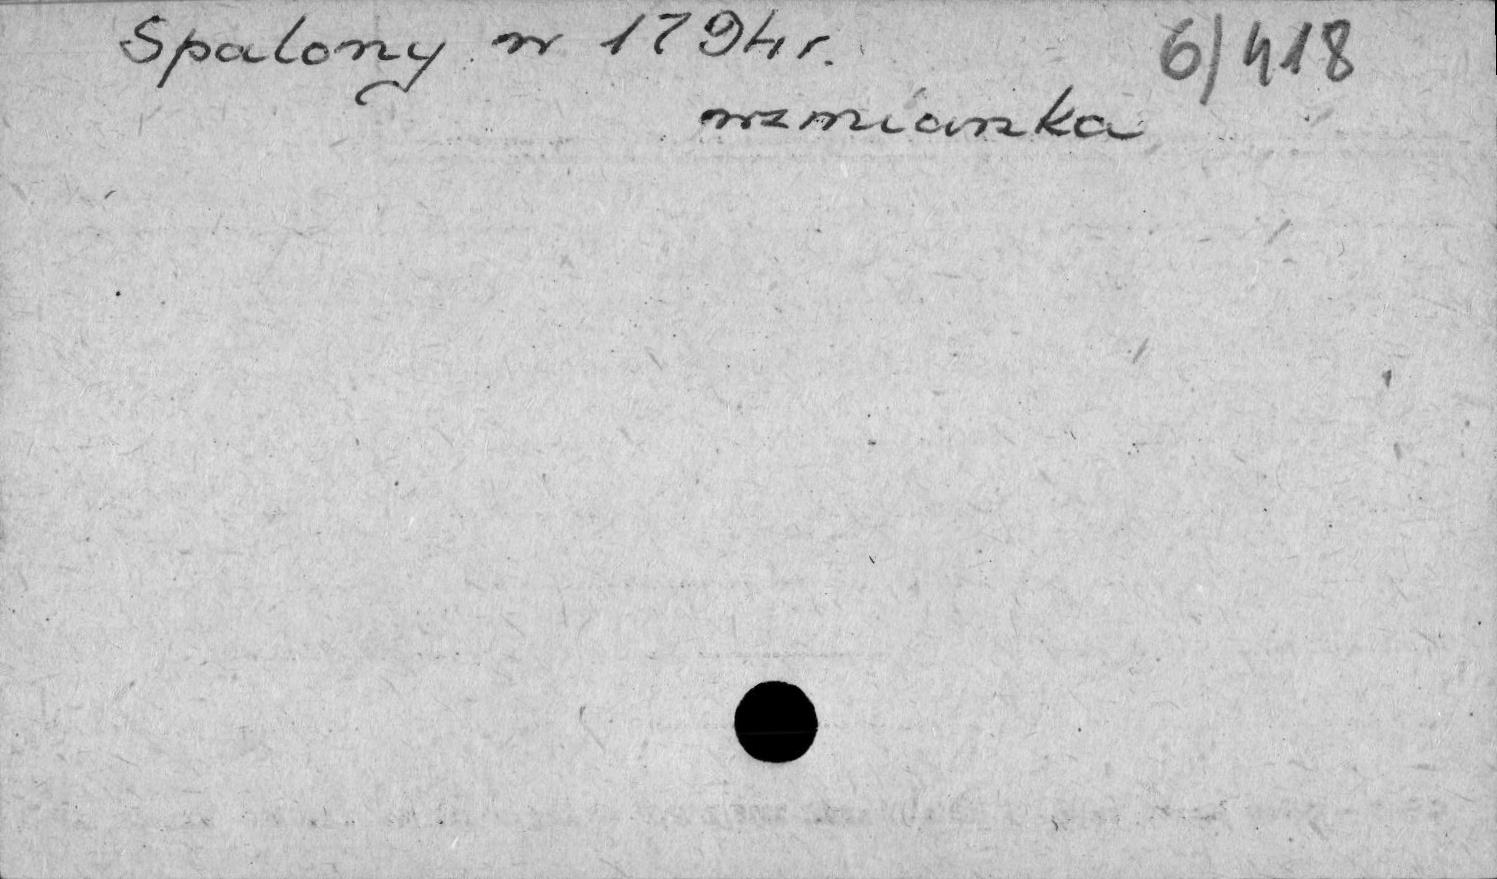 Spalony w 1794 r. 6/418
wzmianka